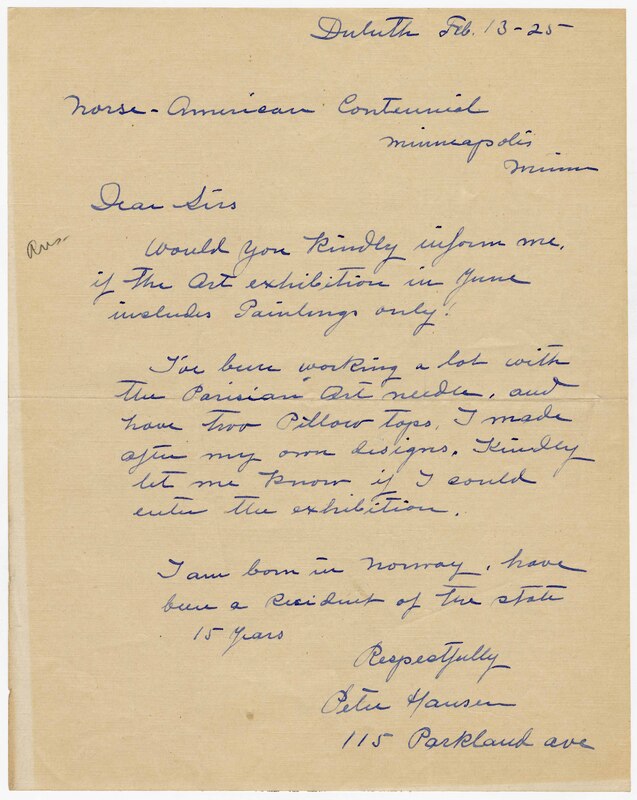 Duluth Feb. 13-25
Norse-American Centennial
Minneapolis
Minn
Dear Sirs
Ans-
Would you kindly inform me,
if the Art exhibition in June
includes Paintings only!
I've been working a lot with
the Parisian Art needle, and
have two Pillow tops, I made
after my own designs. Kindly
let me know if I could
enter the exhibition.
I am born in Norway, have
been a resident of the state
15 years
Respectfully
Peter Hansen
115 Parkland ave